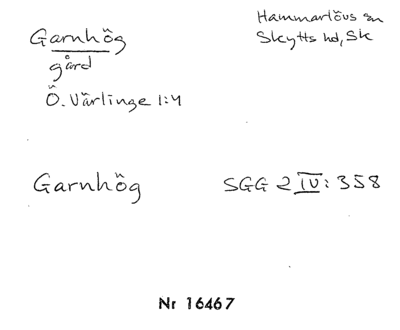 Garnhög
Hammarlövs sn
Skytts hd, Sk
gård
Ö. Värlinge 1:4
Garnhög
SGG 2 IV: 358
Nr 16467